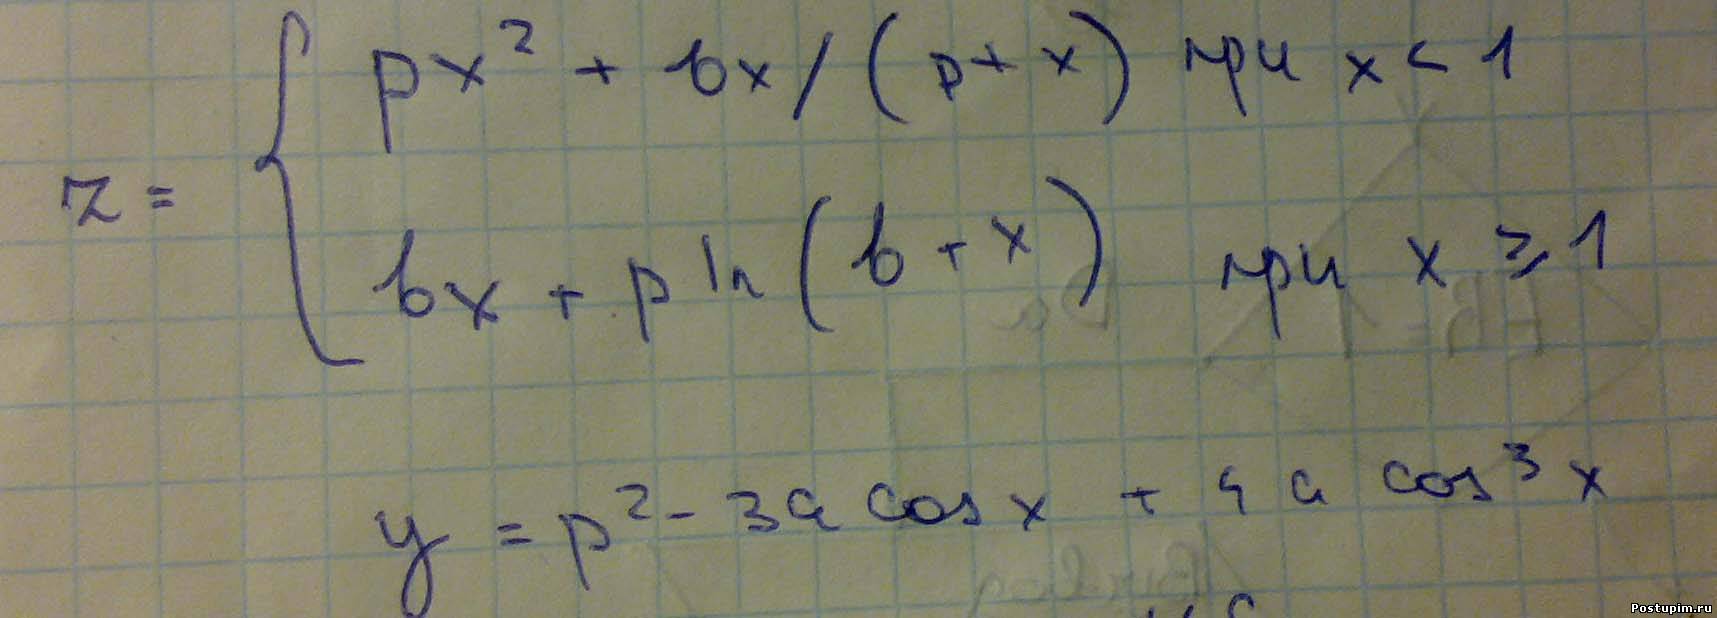 z = { px² + bx / (p + x) при x < 1
bx + p ln (b + x) при x ≥ 1
y = p² - 3a cos x + 4 a cos³ x
Postupim.ru